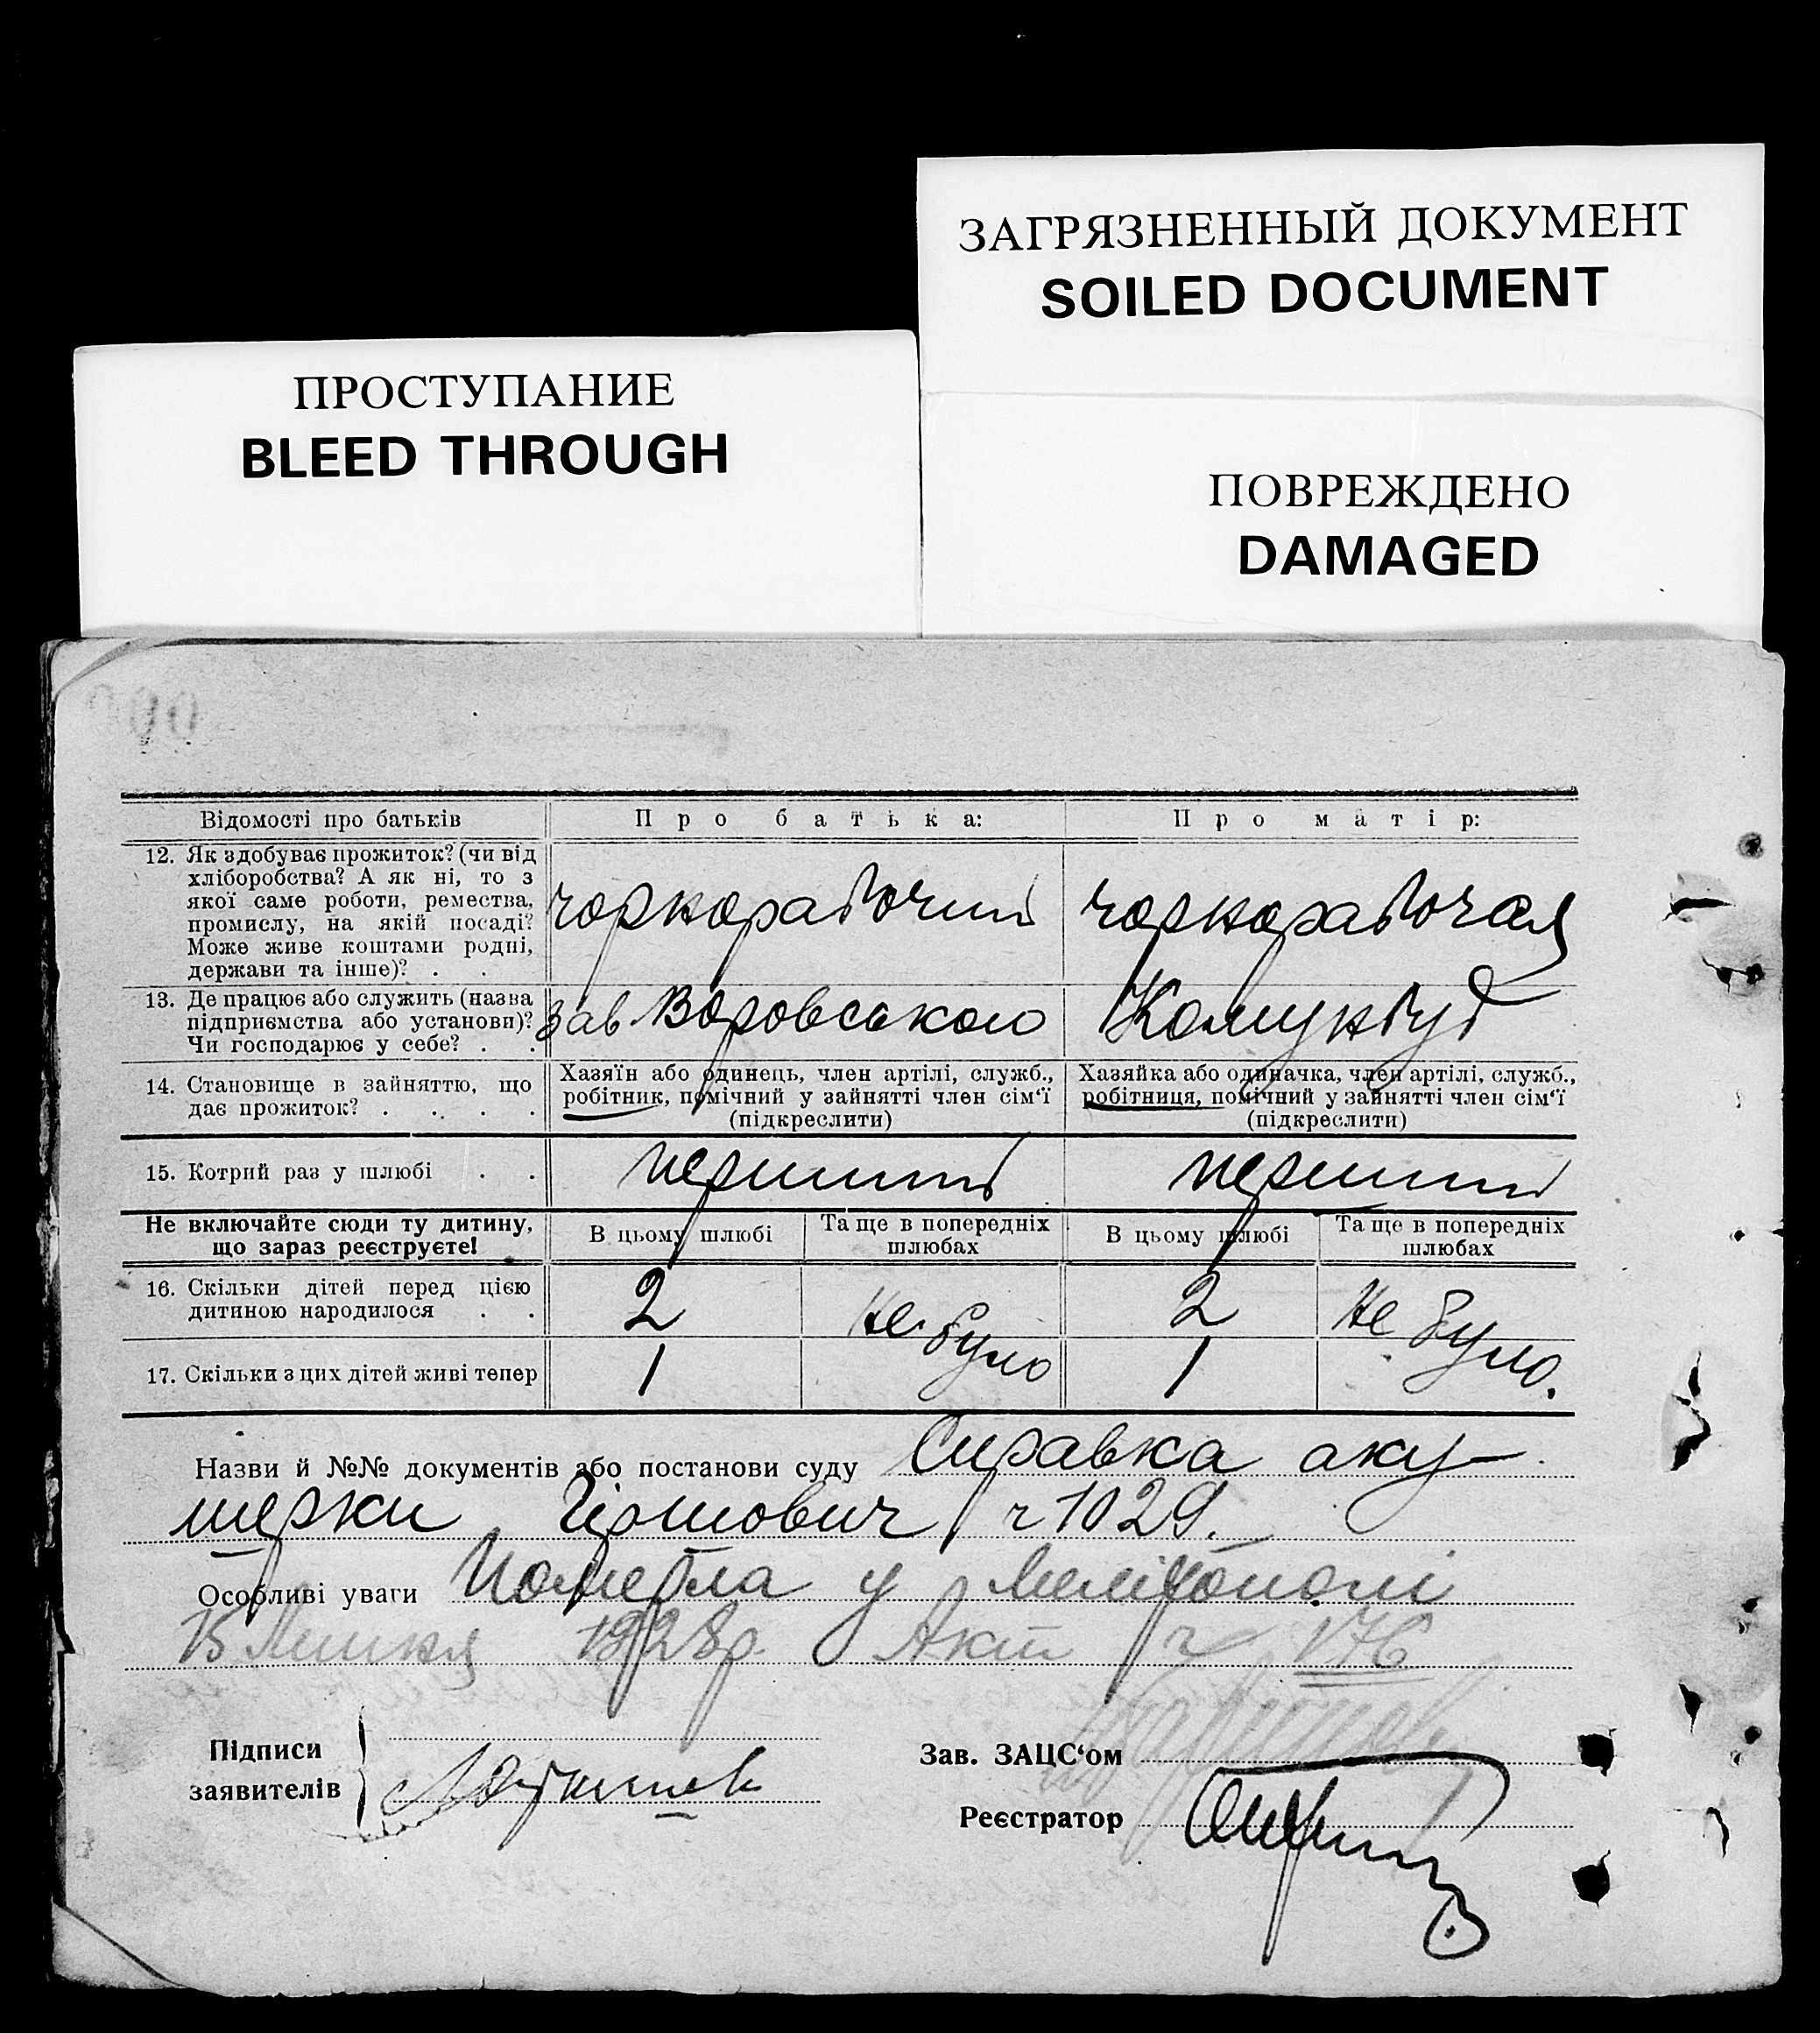 ЗАГРЯЗНЕННЫЙ ДОКУМЕНТ
SOILED DOCUMENT
ПРОСТУПАНИЕ
BLEED THROUGH
ПОВРЕЖДЕНО
DAMAGED
Відомості про батьків
Про батька:
Про матір:
12. Як здобуває прожиток? (чи від
хліборобства? А як ні, то з
якої саме роботи, ремества,
промислу, на якій посаді?
Може живе коштами родні,
держави та інше)? . .
чорнорабочий
чорнорабочая
13. Де працює або служить (назва
підприємства або установи)?
Чи господарює у себе? . .
зав Воровського
Комунбуд
14. Становище в зайняттю, що
дає прожиток? . . . .
Хазяїн або одинець, член артілі, служб.,
робітник, помічний у зайнятті член сім‘ї
(підкреслити)
Хазяйка або одиначка, член артілі, служб.,
робітниця, помічний у зайнятті член сім‘ї
(підкреслити)
15. Котрий раз у шлюбі . .
перший
перший
Не включайте сюди ту дитину,
що зараз реєструєте!
В цьому шлюбі
Та ще в попередніх
шлюбах
В цьому шлюбі
Та ще в попередніх
шлюбах
16. Скільки дітей перед цією
дитиною народилося . .
2
не було
2
не було.
17. Скільки з цих дітей живі тепер
1
1
Назви й №№ документів або постанови суду Справка аку-
шерки Гершович ч 1029.
Особливі уваги Померла у Мелітополі
15 Липня 1928р. Акт ч 176
Підписи
заявителів
Зав. ЗАЦС‘ом
Реєстратор